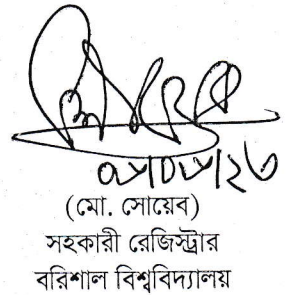 (মো. সোয়েব)
সহকারী রেজিস্ট্রার
বরিশাল বিশ্ববিদ্যালয়